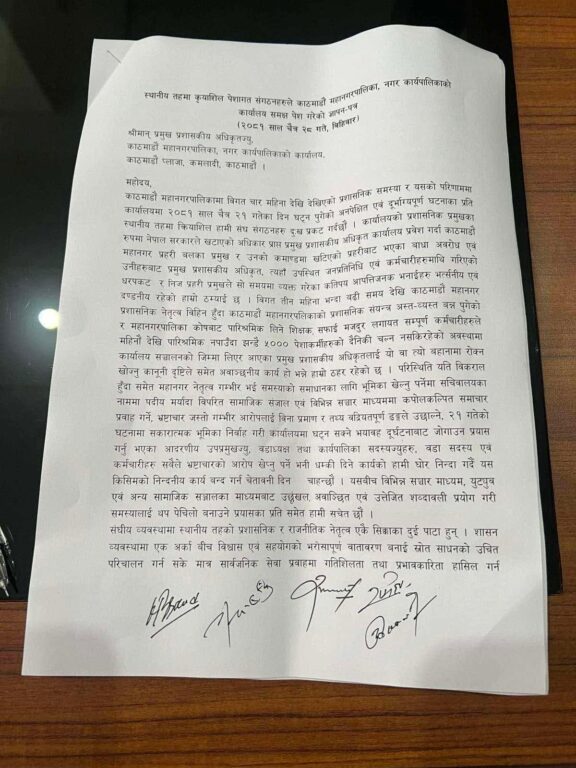 स्थानीय तहमा कृयाशिल पेशागत संगठनहरुले काठमाडौं महानगरपालिका, नगर कार्यपालिकाको
कार्यालय समक्ष पेश गरेको ज्ञापन-पत्र
(२०८१ साल चैत्र २८ गते, बिहिवार)
श्रीमान् प्रमुख प्रशासकीय अधिकृतज्यु,
काठमाडौं महानगरपालिका, नगर कार्यपालिकाको कार्यालय,
काठमाडौं प्लाजा, कमलादी, काठमाडौं ।
महोदय,
काठमाडौं महानगरपालिकामा विगत चार महिना देखि देखिएको प्रशासनिक समस्या र यसको परिणाममा
कार्यालयमा २०८१ साल चैत्र २१ गतेका दिन घट्न पुगेको अनपेक्षित एवं दुर्भाग्यपूर्ण घटनाका प्रति
स्थानीय तहमा क्रियाशिल हामी संघ संगठनहरु दुःख प्रकट गर्दछौं । कार्यालयको प्रशासनिक प्रमुखका
रुपमा नेपाल सरकारले खटाएको अधिकार प्राप्त प्रमुख प्रशासकीय अधिकृत कार्यालय प्रवेश गर्दा काठमाडौं
महानगर प्रहरी बलका प्रमुख र उनको कमाण्डमा खटिएको प्रहरीबाट भएका बाधा अवरोध एवं
उनीहरुबाट प्रमुख प्रशासकीय अधिकृत, त्यहाँ उपस्थित जनप्रतिनिधि एवं कर्मचारीहरुमाथि गरिएको
धरपकट र निज प्रहरी प्रमुखले सो समयमा व्यक्त गरेका कतिपय आपत्तिजनक भनाईहरु भर्त्सनीय एवं
दण्डनीय रहेको हाम्रो ठम्याई छ । विगत तीन महिना भन्दा बढी समय देखि काठमाडौं महानगर
प्रशासनिक नेतृत्व विहिन हुँदा काठमाडौं महानगरपालिकाको प्रशासनिक संयन्त्र अस्त-व्यस्त बन्न पुगेको
र महानगरपालिका कोषबाट पारिश्रमिक लिने शिक्षक, सफाई मजदुर लगायत सम्पूर्ण कर्मचारीहरुले
महिनौ देखि पारिश्रमिक नपाउदा झन्डै ५००० पेशाकर्मीहरुको दैनिकी चल्न नसकिरहेको अवस्थामा
कार्यालय सञ्चालनको जिम्मा लिएर आएका प्रमुख प्रशासकीय अधिकृतलाई यो वा त्यो बहानामा रोक्न
खोज्नु कानूनी दृष्टिले समेत अवाञ्छनीय कार्य हो भन्ने हाम्रो ठहर रहेको छ । परिस्थिति यति विकराल
हुँदा समेत महानगर नेतृत्व गम्भीर भई समस्याको समाधानका लागि भूमिका खेल्नु पर्नेमा सचिवालयका
नाममा पदीय मर्यादा विपरित सामाजिक संजाल एवं विभिन्न सञ्चार माध्यममा कपोलकल्पित समाचार
प्रवाह गर्ने, भ्रष्टाचार जस्तो गम्भीर आरोपलाई बिना प्रमाण र तथ्य बद्रियतपूर्ण ढङ्गले उछाल्ने, २१ गतेको
घटनामा सकारात्मक भूमिका निर्वाह गरी कार्यालयमा घट्न सक्ने भयावह दूर्घटनाबाट जोगाउन प्रयास
गर्नु भएका आदरणीय उपप्रमुखज्यु, वडाध्यक्ष तथा कार्यपालिका सदस्यज्युहरु, वडा सदस्य एवं
कर्मचारीहरु सबैले भ्रष्टाचारको आरोप खेप्नु पर्ने भनी धम्की दिने कार्यको हामी घोर निन्दा गर्दै यस
किसिमको निन्दनीय कार्य बन्द गर्न चेतावनी दिन चाहन्छौं । यसबीच विभिन्न सञ्चार माध्यम, युट्युव
एवं अन्य सामाजिक सञ्जालका माध्यमबाट उछृखल, अवाञ्छित एवं उत्तेजित शब्दावली प्रयोग गरी
समस्यालाई थप पेचिलो बनाउने प्रयासका प्रति समेत हामी सचेत छौं ।
संघीय व्यवस्थामा स्थानीय तहको प्रशासनिक र राजनीतिक नेतृत्व एकै सिक्काका दुई पाटा हुन् । शासन
व्यवस्थामा एक अर्का बीच विश्वास एवं सहयोगको भरोसापूर्ण वातावरण बनाई स्रोत साधनको उचित
परिचालन गर्न सके मात्र सार्वजनिक सेवा प्रवाहमा गतिशिलता तथा प्रभावकारिता हासिल गर्न